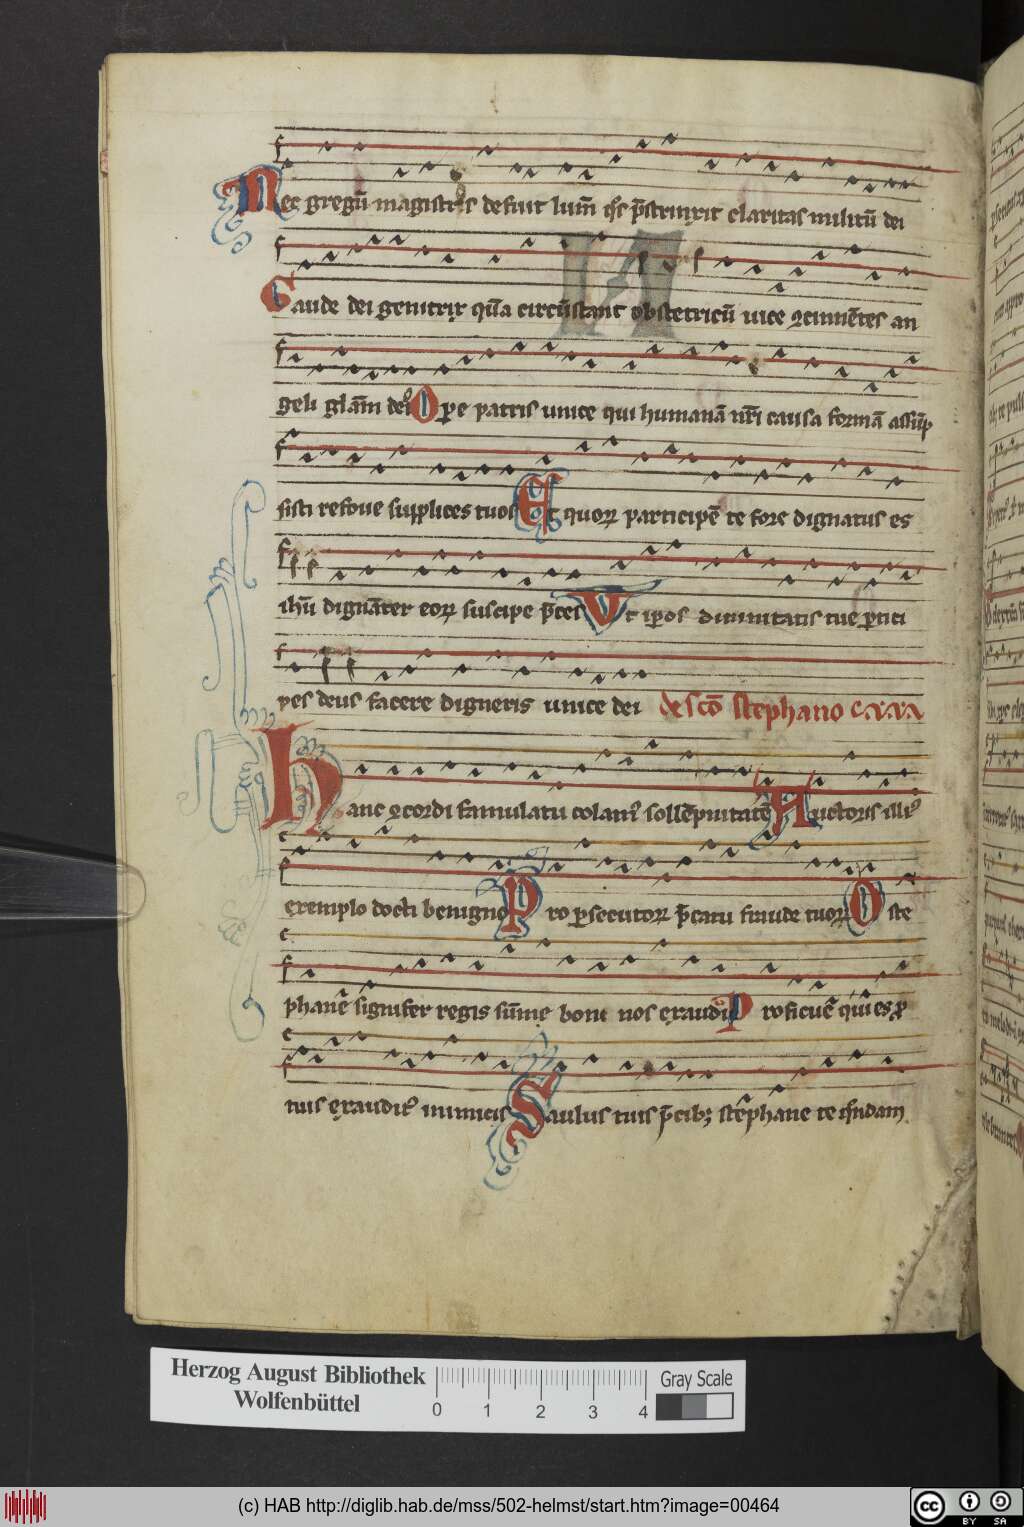 Nec gregū magistris defuit lum̄ q̄s p̄strinxit claritas militū dei
Gaude dei genitrix quā circūstant obstetricū uice ꝯcinētes an
geli glām dei Ihū xpe patris unice qui humanā nr̄i causa formā assūp
sisti refoue supplices tuos Et quoꝝ participē te fore dignatus es
ihū dignāter eoꝝ suscipe p̄ces Vt ip̄os diuinitatis tue ꝑtici
pes deus facere digneris unice dei de scō stephano
Hanc ꝯcordi famulatu colamꝰ sollēpnitatē Auctoris illiꝰ
exemplo docti benigno Pro ꝑsecutoꝝ p̄catu fraude tuoꝝ O ste
phane signifer regis sūme boni nos exaudi Proficue qui es ꝓ
tuis exauditꝰ inimicis Paulus tuis p̄cibꝫ stephane te quidam
Herzog August Bibliothek
Wolfenbüttel
0 1 2 3 4
Gray Scale
(c) HAB http://diglib.hab.de/mss/502-helmst/start.htm?image=00464
cc BY SA